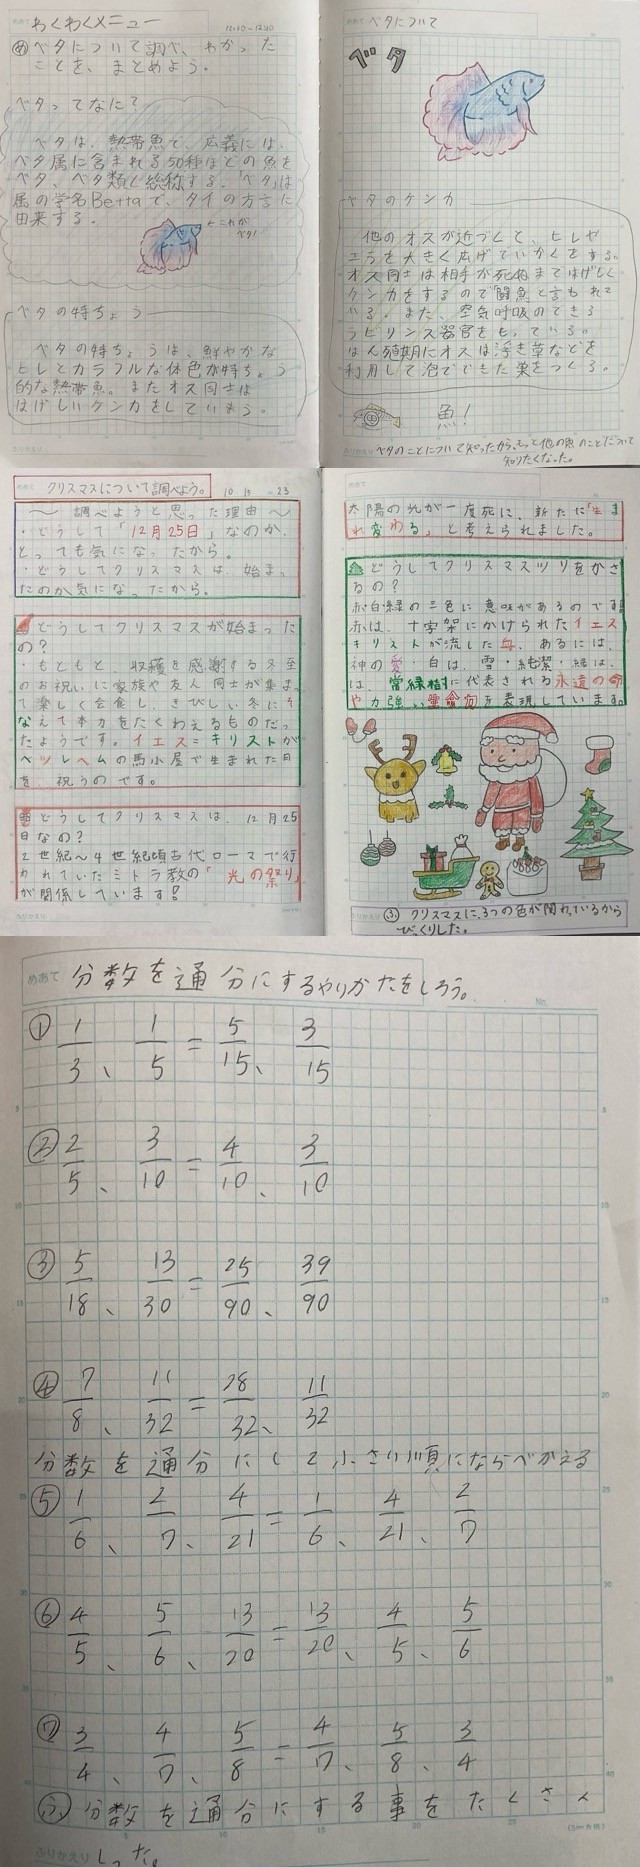 めあて わくわくメニュー
12:10~12:40
め ベタについて調べ、わかった
ことを、まとめよう。
ベタってなに?
ベタは、熱帯魚で、広義には、
ベタ属に含まれる50種ほどの魚を
ベタ、ベタ類と総称する。「ベタ」は
属の学名Bettaで、タイの方言に
由来する。
←これが
ベタ!
ベタの特ちょう
ベタの特ちょうは、鮮やかな
ヒレとカラフルな体色が特ちょう
的な熱帯魚。またオス同士は
はげしいケンカをしてしまう。
ふりかえり
めあて ベタについて
ベタ
ベタのケンカ
他のオスが近づくと、ヒレや
エラを大きく広げていかくをする。
オス同士は相手が死ぬまではげしく
ケンカをするので闘魚と言われて
いる。また、空気呼吸のできる
ラビリンス器官をもっている。
はん殖期にオスは浮き草などを
利用して泡でできた巣をつくる。
魚!
ふりかえり ベタのことについて知ったから、もっと他の魚のことについて
知りたくなった。
めあて クリスマスについて調べよう。 10 15 23
~調べようと思った理由~
・どうして「12月25日」なのか、
とっても気になったから。
・どうしてクリスマスは、始まっ
たのか気になったから。
どうしてクリスマスが始まった
の?
・もともと、収穫を感謝する冬至
のお祝いに家族や友人同士が集まっ
て楽しく会食し、きびしい冬にそ
なえて体力をたくわえるものだっ
たようです。イエス=キリストが
ベツレヘムの馬小屋で生まれた日
を、祝うのです。
どうしてクリスマスは、12月25
日なの?
2世紀~4世紀頃古代ローマで行
われていたミトラ教の「光の祭り」
が関係しています!
ふりかえり
めあて
太陽の光が一度死に、新たに「生ま
れ変わる」と考えられました。
どうしてクリスマスツリをかざ
るの?
赤白緑の三色に意味があるのです!
赤は、十字架にかけられたイエス
キリストが流した血、あるには、
神の愛・白は、雪・純潔・緑は、
は、常緑樹に代表される永遠の命
や力強い生命力を表現しています。
ふりかえり ふ クリスマスに、3つの色が関わっているから
びっくりした。
めあて 分数を通分にするやりかたをしろう。
No.
① 1/3、1/5=5/15、3/15
② 2/5、3/10=4/10、3/10
③ 5/18、13/30=25/90、39/90
④ 7/8、11/32=28/32、11/32
分数を通分にして小さい順にならべかえる
⑤ 1/6、2/7、4/21=1/6、4/21、2/7
⑥ 4/5、5/6、13/20=13/20、4/5、5/6
⑦ 3/4、4/7、5/8=4/7、5/8、3/4
ふ、分数を通分にする事をたくさん
(5mm方眼)
ふりかえり しった。